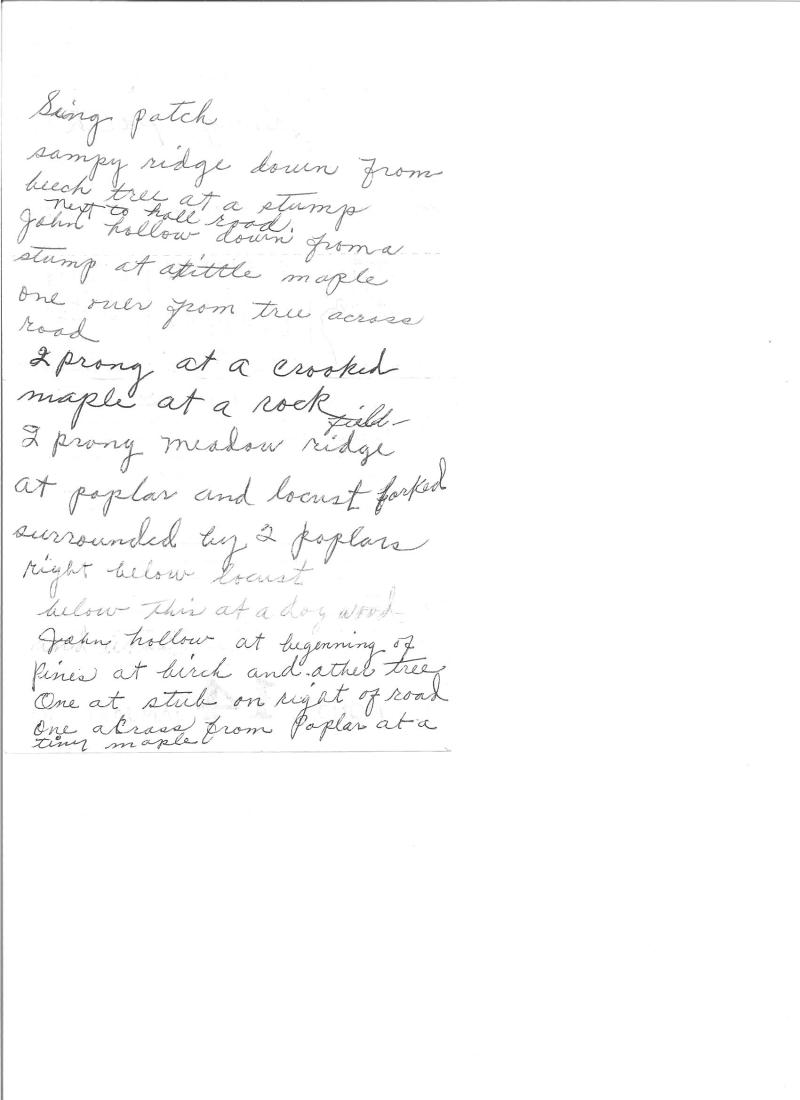 Seing patch
sampy ridge down from
beech tree at a stump
next to holl road.
John hollow down from a
stump at a little maple
one over from tree across
road
2 prong at a crooked
maple at a rock
field-
2 prong meadow ridge
at poplar and locust forked
surrounded by 2 poplars
right below locust
below this at a dog wood
John hollow at begenning of
pines at birch and other tree
One at stub on right of road
One across from Poplar at a
tiny maple